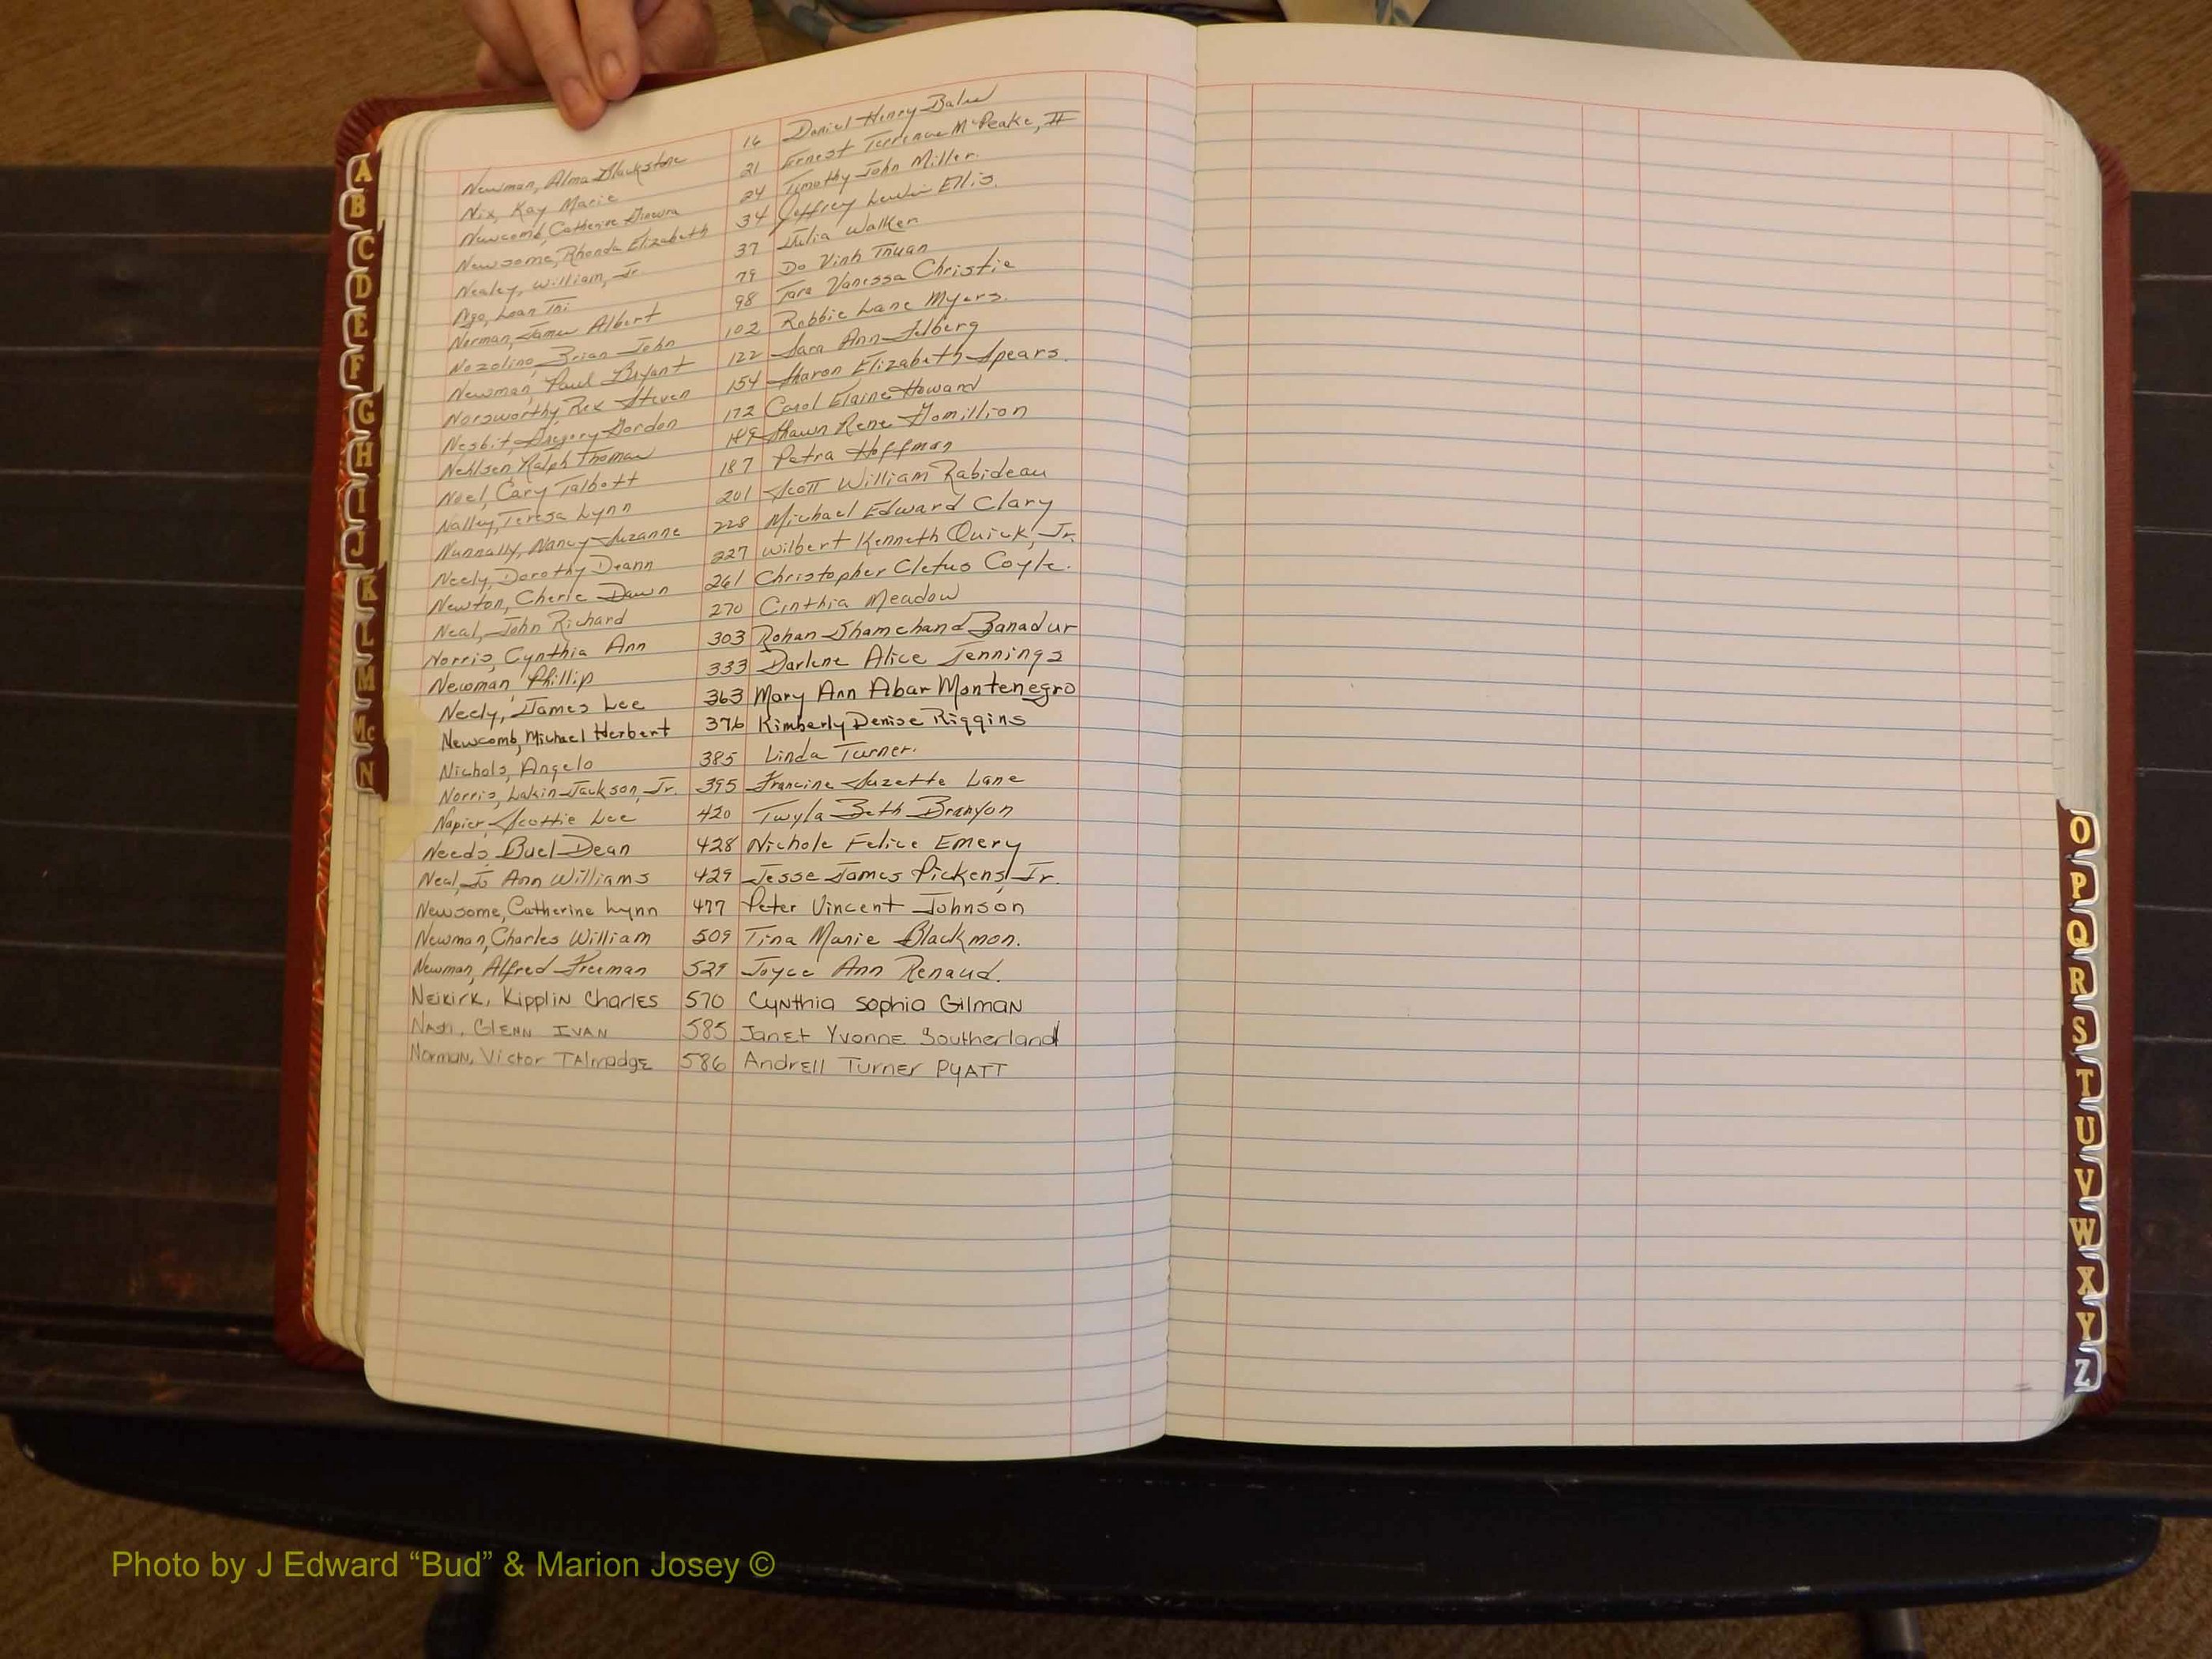 Newman, Alma Blackstone 16 Daniel Henry
Nix, Kay Marie 21 Ernest Terrence McPeake, II
Newcomb, Catherine 24 Timothy John Miller.
Newsome, Rhonda Elizabeth 34 Jeffrey Lewis Ellis.
Nealey, William, Jr. 37 Julia Walker
Ngo, Loan Thi 79 Do Vinh Thuan
Norman, James Albert 98 Tara Vanessa Christie
Nozolino, Brian John 102 Robbie Lane Myers.
Newman, Paul Bryant 122 Sara Ann
Norsworthy, Rex Steven 154 Sharon Elizabeth Spears.
Nesbit, Gregory Gordon 172 Carol Elaine Howard
Nehlsen, Ralph Thomas Shawn Rene Gomillion
Noel, Cary Talbott 187 Petra Hoffman
Nalley, Teresa Lynn 201 Scott William Rabideau
Nunnally, Nancy Suzanne 228 Michael Edward Clary
Neely, Dorothy Deann 227 Wilbert Kenneth Quick, Jr.
Newton, Cherie Dawn 261 Christopher Cletus Coyle.
Neal, John Richard 270 Cinthia Meadow
Norris, Cynthia Ann 303 Rohan Shamchand Banadur
Newman, Phillip 333 Darlene Alice Jennings
Neely, James Lee 363 Mary Ann Abar Montenegro
Newcomb, Michael Herbert 376 Kimberly Denise Riggins
Nichols, Angelo 385 Linda Turner.
Norris, Lakin Jackson, Jr. 395 Francine Suzette Lane
Napier, Scottie Lee 420 Twyla Beth Branyon
Needs, Buel Dean 428 Nichole Felice Emery
Neal, Jo Ann Williams 429 Jesse James Pickens, Jr.
Newsome, Catherine Lynn 477 Peter Vincent Johnson
Newman, Charles William 509 Tina Marie Blackmon.
Newman, Alfred Freeman 529 Joyce Ann Renaud.
Neikirk, Kipplin Charles 570 Cynthia Sophia Gilman
Nash, Glenn Ivan 585 Janet Yvonne Southerland
Norman, Victor Talmadge 586 Andrell Turner Pyatt
A
B
C
D
E
F
G
H
I
J
K
L
M
Mc
N
O
P
Q
R
S
T
U
V
W
X
Y
Z
Photo by J Edward “Bud” & Marion Josey ©